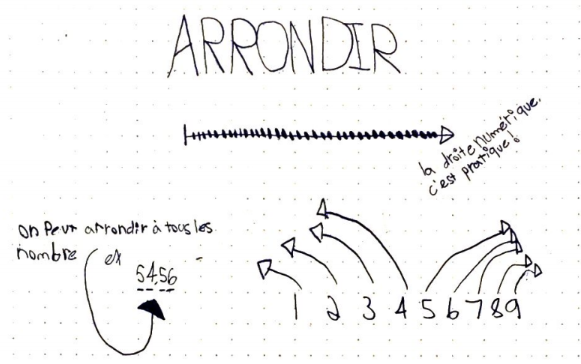 ARRONDIR
la droite numérique.
c'est pratique!
on Peut arrondir à tous les
nombre ex
54,56
1 2 3 4 5 6 7 8 9